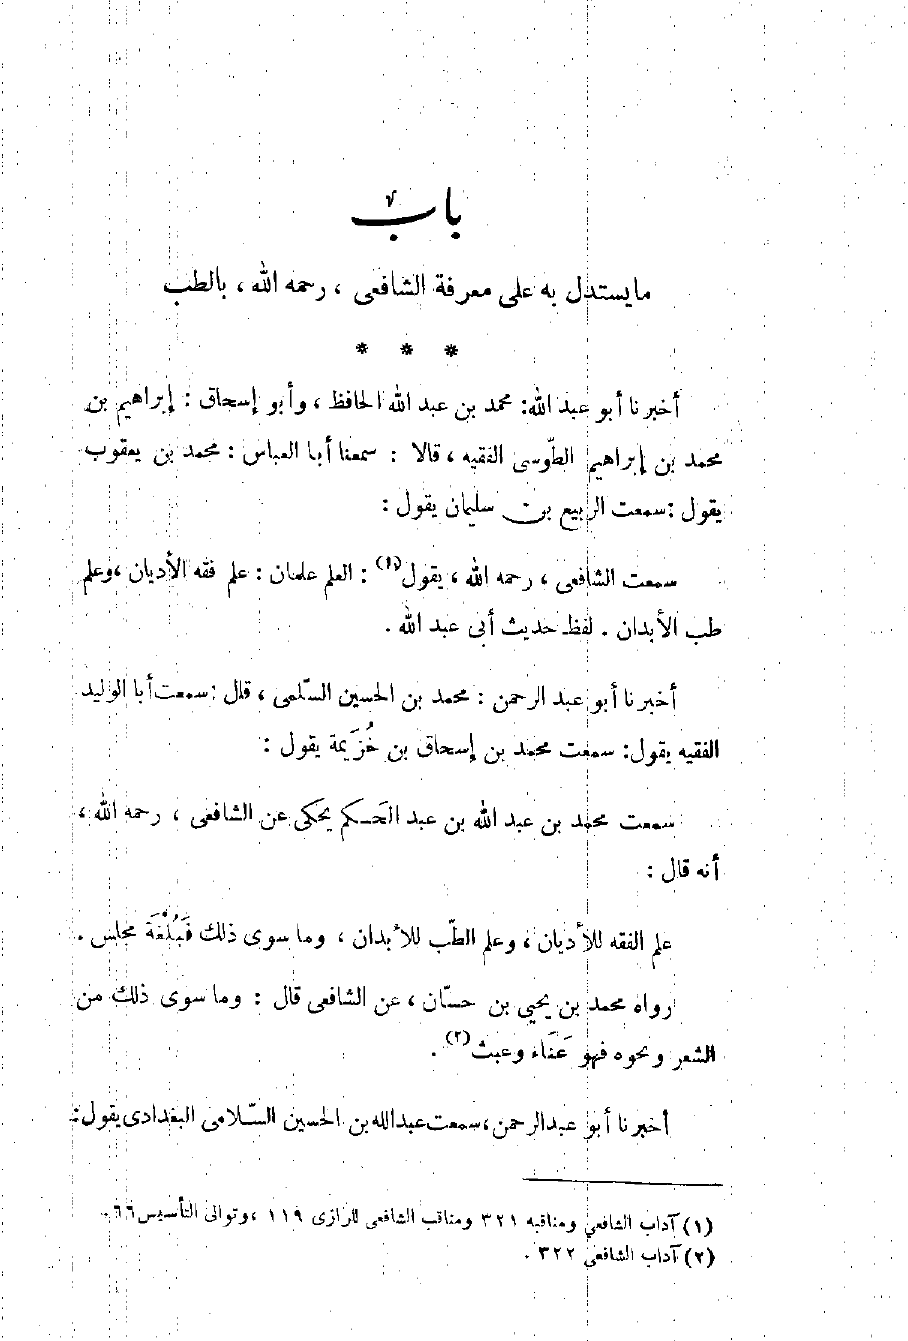 باب
ما يستدل به على معرفة الشافعى ، رحمه الله ، بالطب
* * *
أخبرنا أبو عبد الله: محمد بن عبد الله الحافظ ، وأبو إسحاق : إبراهيم بن
محمد بن إبراهيم الطّوسى الفقيه ، قالا : سمعنا أبا العباس : محمد بن يعقوب
يقول : سمعت الربيع بن سليمان يقول :
سمعت الشافعى ، رحمه الله ، يقول(١) : العلم علمان : علم فقه الأديان ، وعلم
طب الأبدان . لفظ حديث أبى عبد الله .
أخبرنا أبو عبد الرحمن : محمد بن الحسين السّلمى ، قال : سمعت أبا الوليد
الفقيه يقول: سمعت محمد بن إسحاق بن خُزَيمة يقول :
سمعت محمد بن عبد الله بن عبد الحَكم يحكى عن الشافعى ، رحمه الله ،
أنه قال :
علم الفقه للأديان ، وعلم الطّب للأبدان ، وما سوى ذلك فَبُلْغَة مجلس .
رواه محمد بن يحيى بن حسّان ، عن الشافعى قال : وما سوى ذلك من
الشعر ونحوه فهو عَنَاء وعبث(٢) .
أخبرنا أبو عبد الرحمن ، سمعت عبد الله بن الحسين السّلامى البغدادى يقول :
(١) آداب الشافعي ومناقبه ٣٢١ ومناقب الشافعى للرازى ١١٩ ، وتوالى التأسيس ٦٦ .
(٢) آداب الشافعى ٣٢٢ .